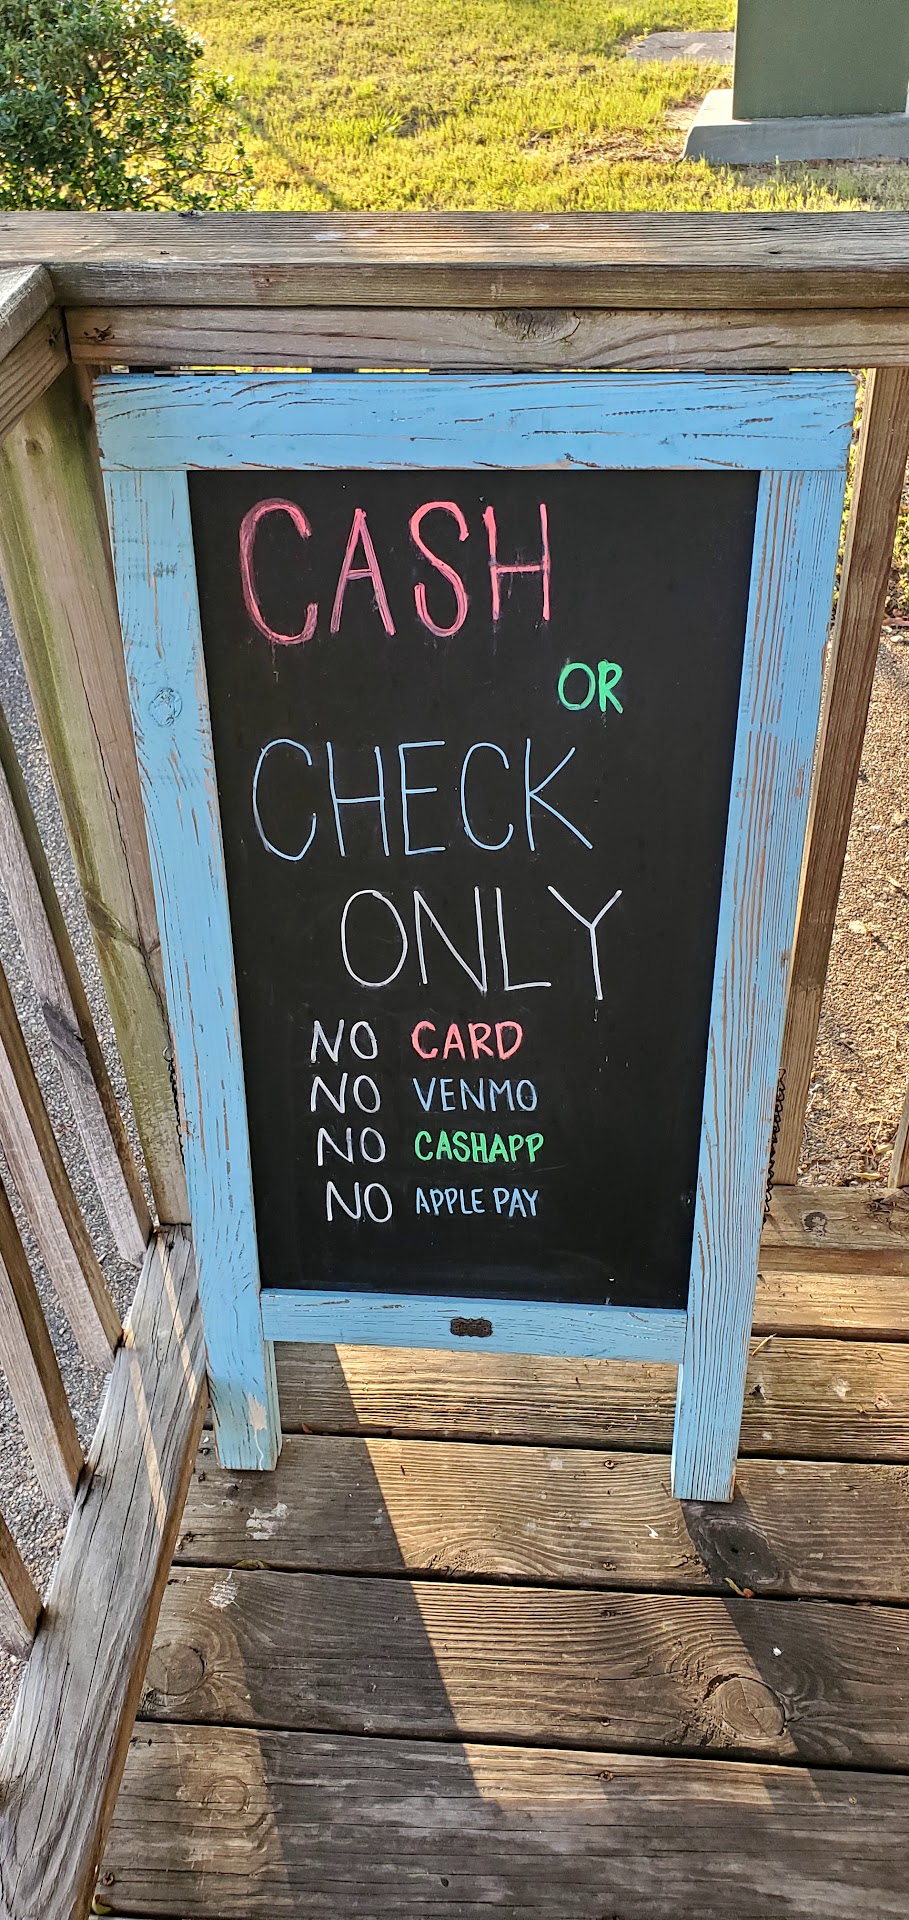 CASH
OR
CHECK
ONLY
NO CARD
NO VENMO
NO CASHAPP
NO APPLE PAY